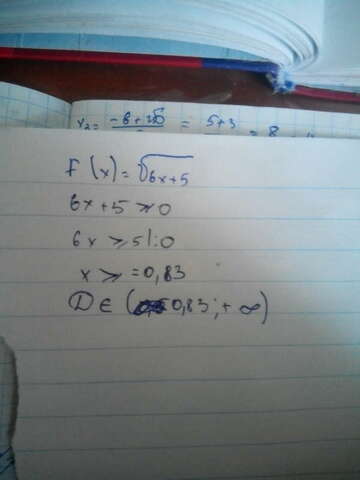 x₂ = -b+√D = 5+3 = 8
F(x)=√6x+5
6x+5≥0
6x≥5|:0
x≥=0,83
D∈(0,83;+∞)